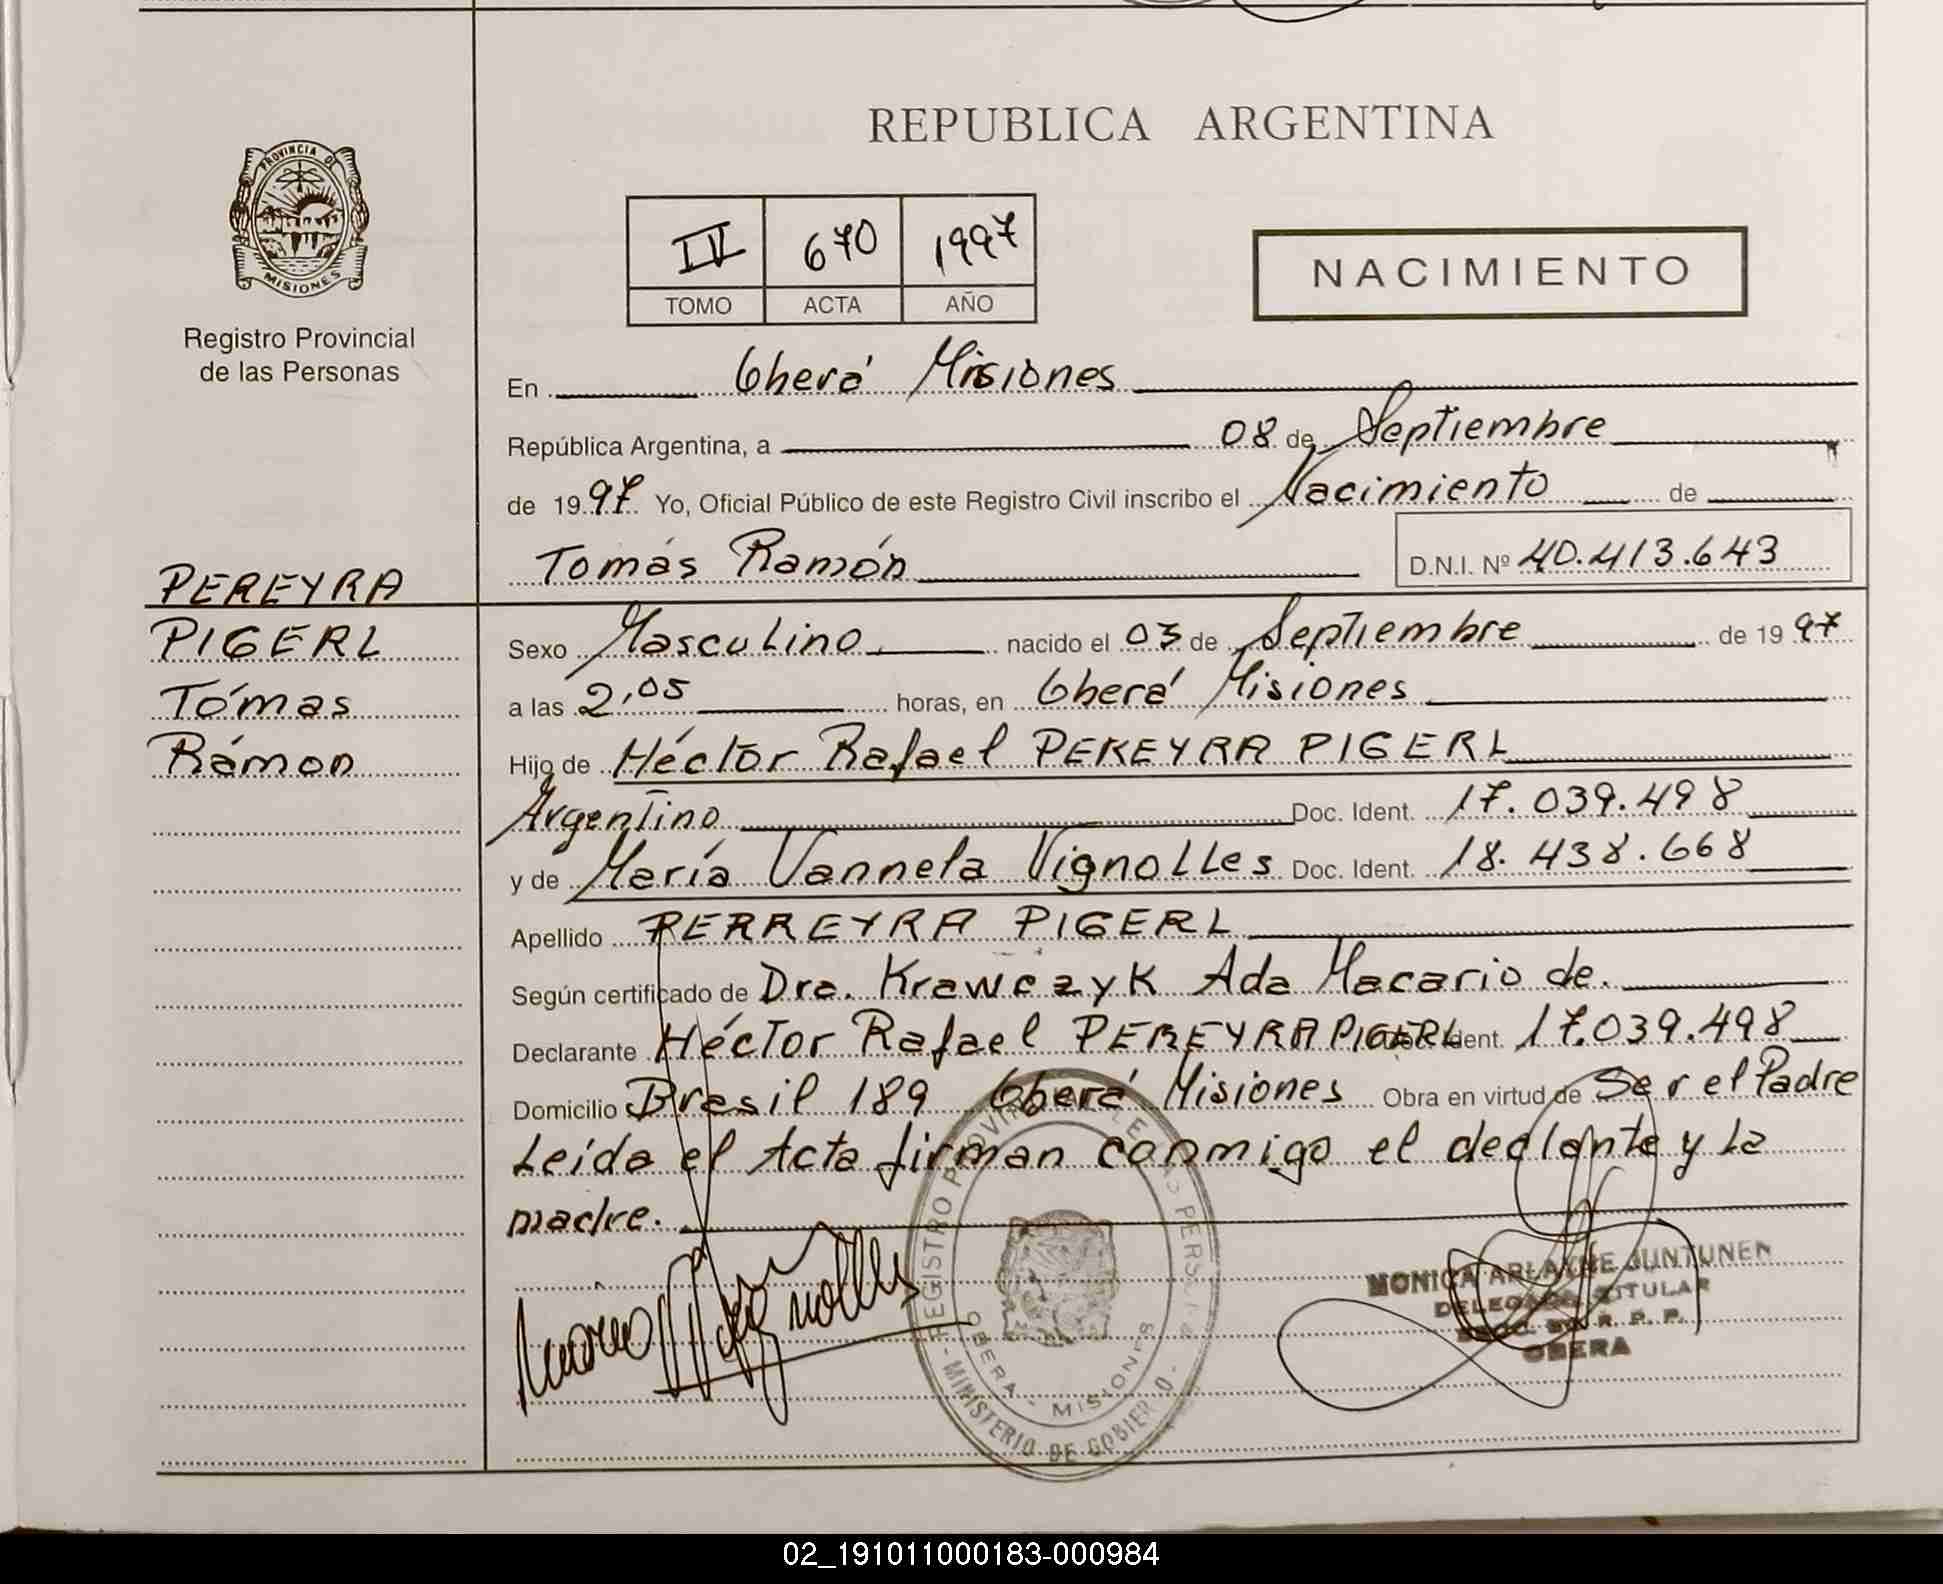 REPUBLICA ARGENTINA
PROVINCIA DE
MISIONES
Registro Provincial
de las Personas
IV 670 1997
TOMO ACTA AÑO
NACIMIENTO
En Oberá Misiones
República Argentina, a 08 de Septiembre
de 1997 Yo, Oficial Público de este Registro Civil inscribo el Nacimiento de
Tomás Ramón D.N.I. Nº 40.413.643
PEREYRA
PIGERL
Tómas
Rámon
Sexo Masculino nacido el 03 de Septiembre de 1997
a las 2,05 horas, en Oberá Misiones
Hijo de Héctor Rafael PEREYRA PIGERL
Argentino Doc. Ident. 17.039.498
y de María Vannela Vignolles Doc. Ident. 18.438.668
Apellido PERREYRA PIGERL
Según certificado de Dra. Krawczyk Ada Macario de.
Declarante Héctor Rafael PEREYRA PIGERL Doc. Ident. 17.039.498
Domicilio Brasil 189 Oberá Misiones Obra en virtud de Ser el Padre
Leída el Acta firman conmigo el declante y la
madre.
REGISTRO PROVINCIAL DE LAS PERSONAS
OBERA - MISIONES
- MINISTERIO DE GOBIERNO -
MONICA ARLAYNE JUNTUNEN
DELEGADA TITULAR
R. P. P.
OBERA
02_191011000183-000984